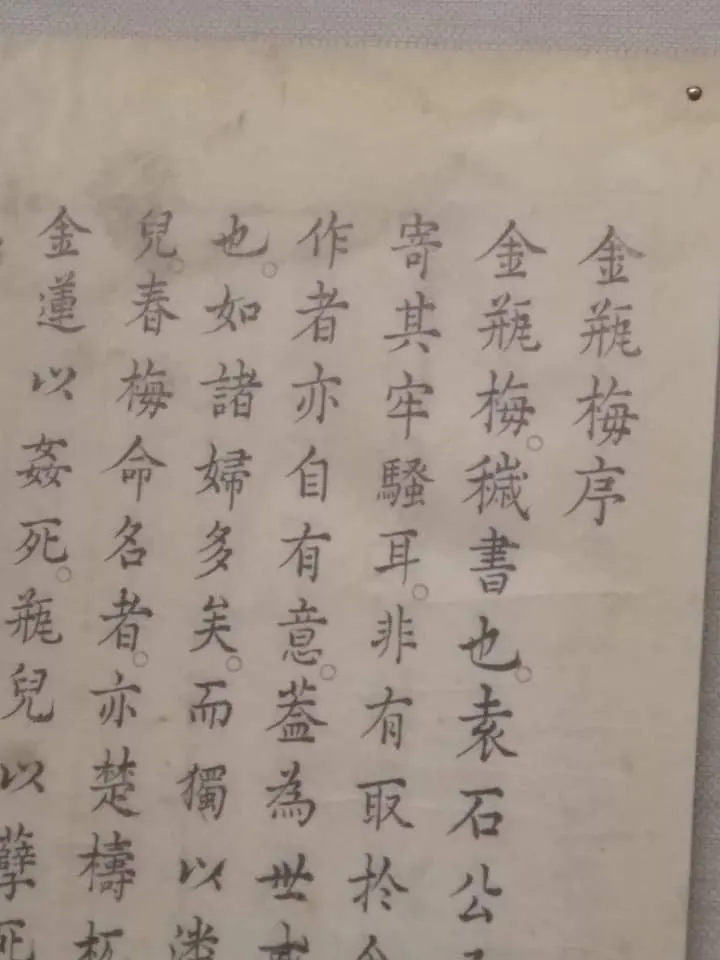 金瓶梅序
金瓶梅。穢書也。袁石公
寄其牢騷耳。非有取於金
作者亦自有意。蓋為世戒
也。如諸婦多矣。而獨以潘
兒。春梅命名者。亦楚檮杌
金蓮以姦死。瓶兒以孽死